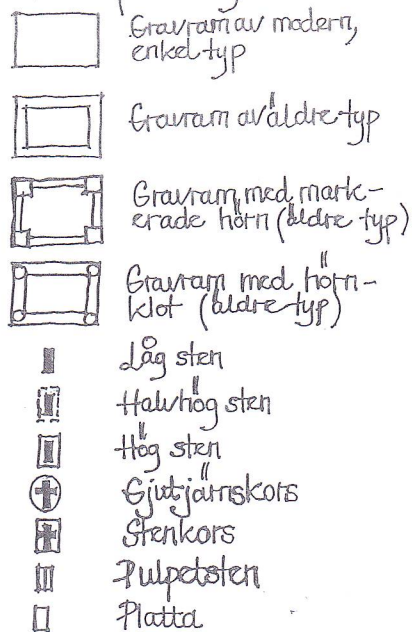 Gravram av modern,
enkel typ
Gravram av äldre typ
Gravram med mark-
erade hörn (äldre typ)
Gravram med hörn-
klot (äldre typ)
Låg sten
Halvhög sten
Hög sten
Gjutjärnskors
Stenkors
Pulpetsten
Platta